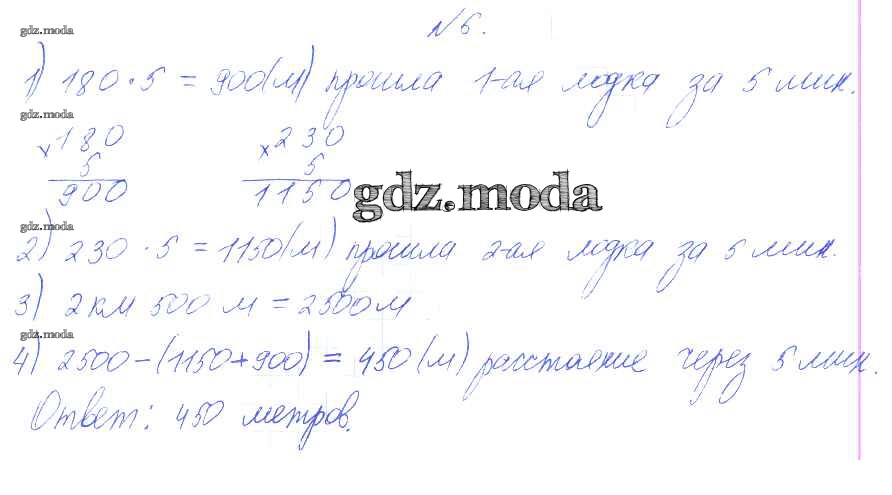 №6.
gdz.moda
1) 180·5 = 900(м) прошла 1-ая лодка за 5 мин.
gdz.moda
×180 ×230
5 5
900 1150
gdz.moda
gdz.moda
2) 230·5 = 1150(м) прошла 2-ая лодка за 5 мин.
3) 2 км 500 м = 2500м
gdz.moda
4) 2500-(1150+900) = 450(м) расстояние через 5 мин.
Ответ: 450 метров.